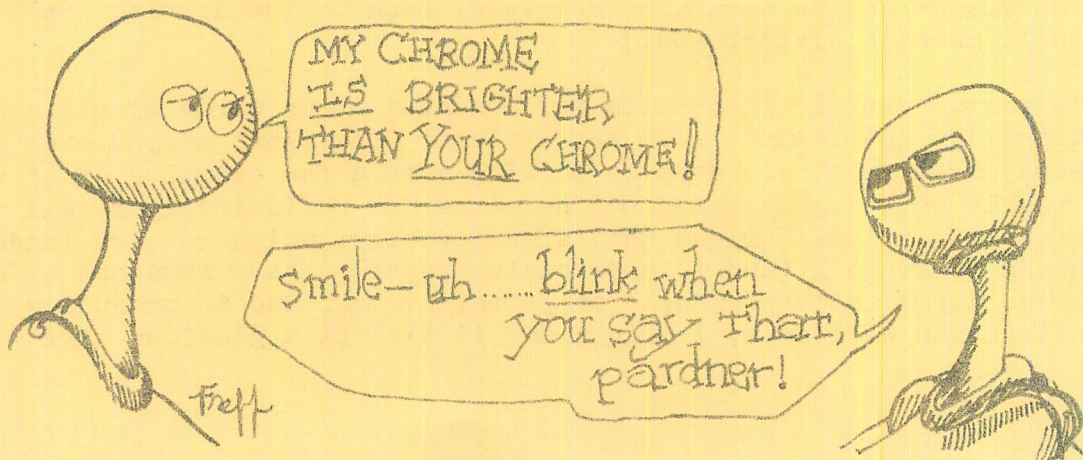 MY CHROME
IS BRIGHTER
THAN YOUR CHROME!
smile— uh....... blink when
you say that,
pardner!
Freff